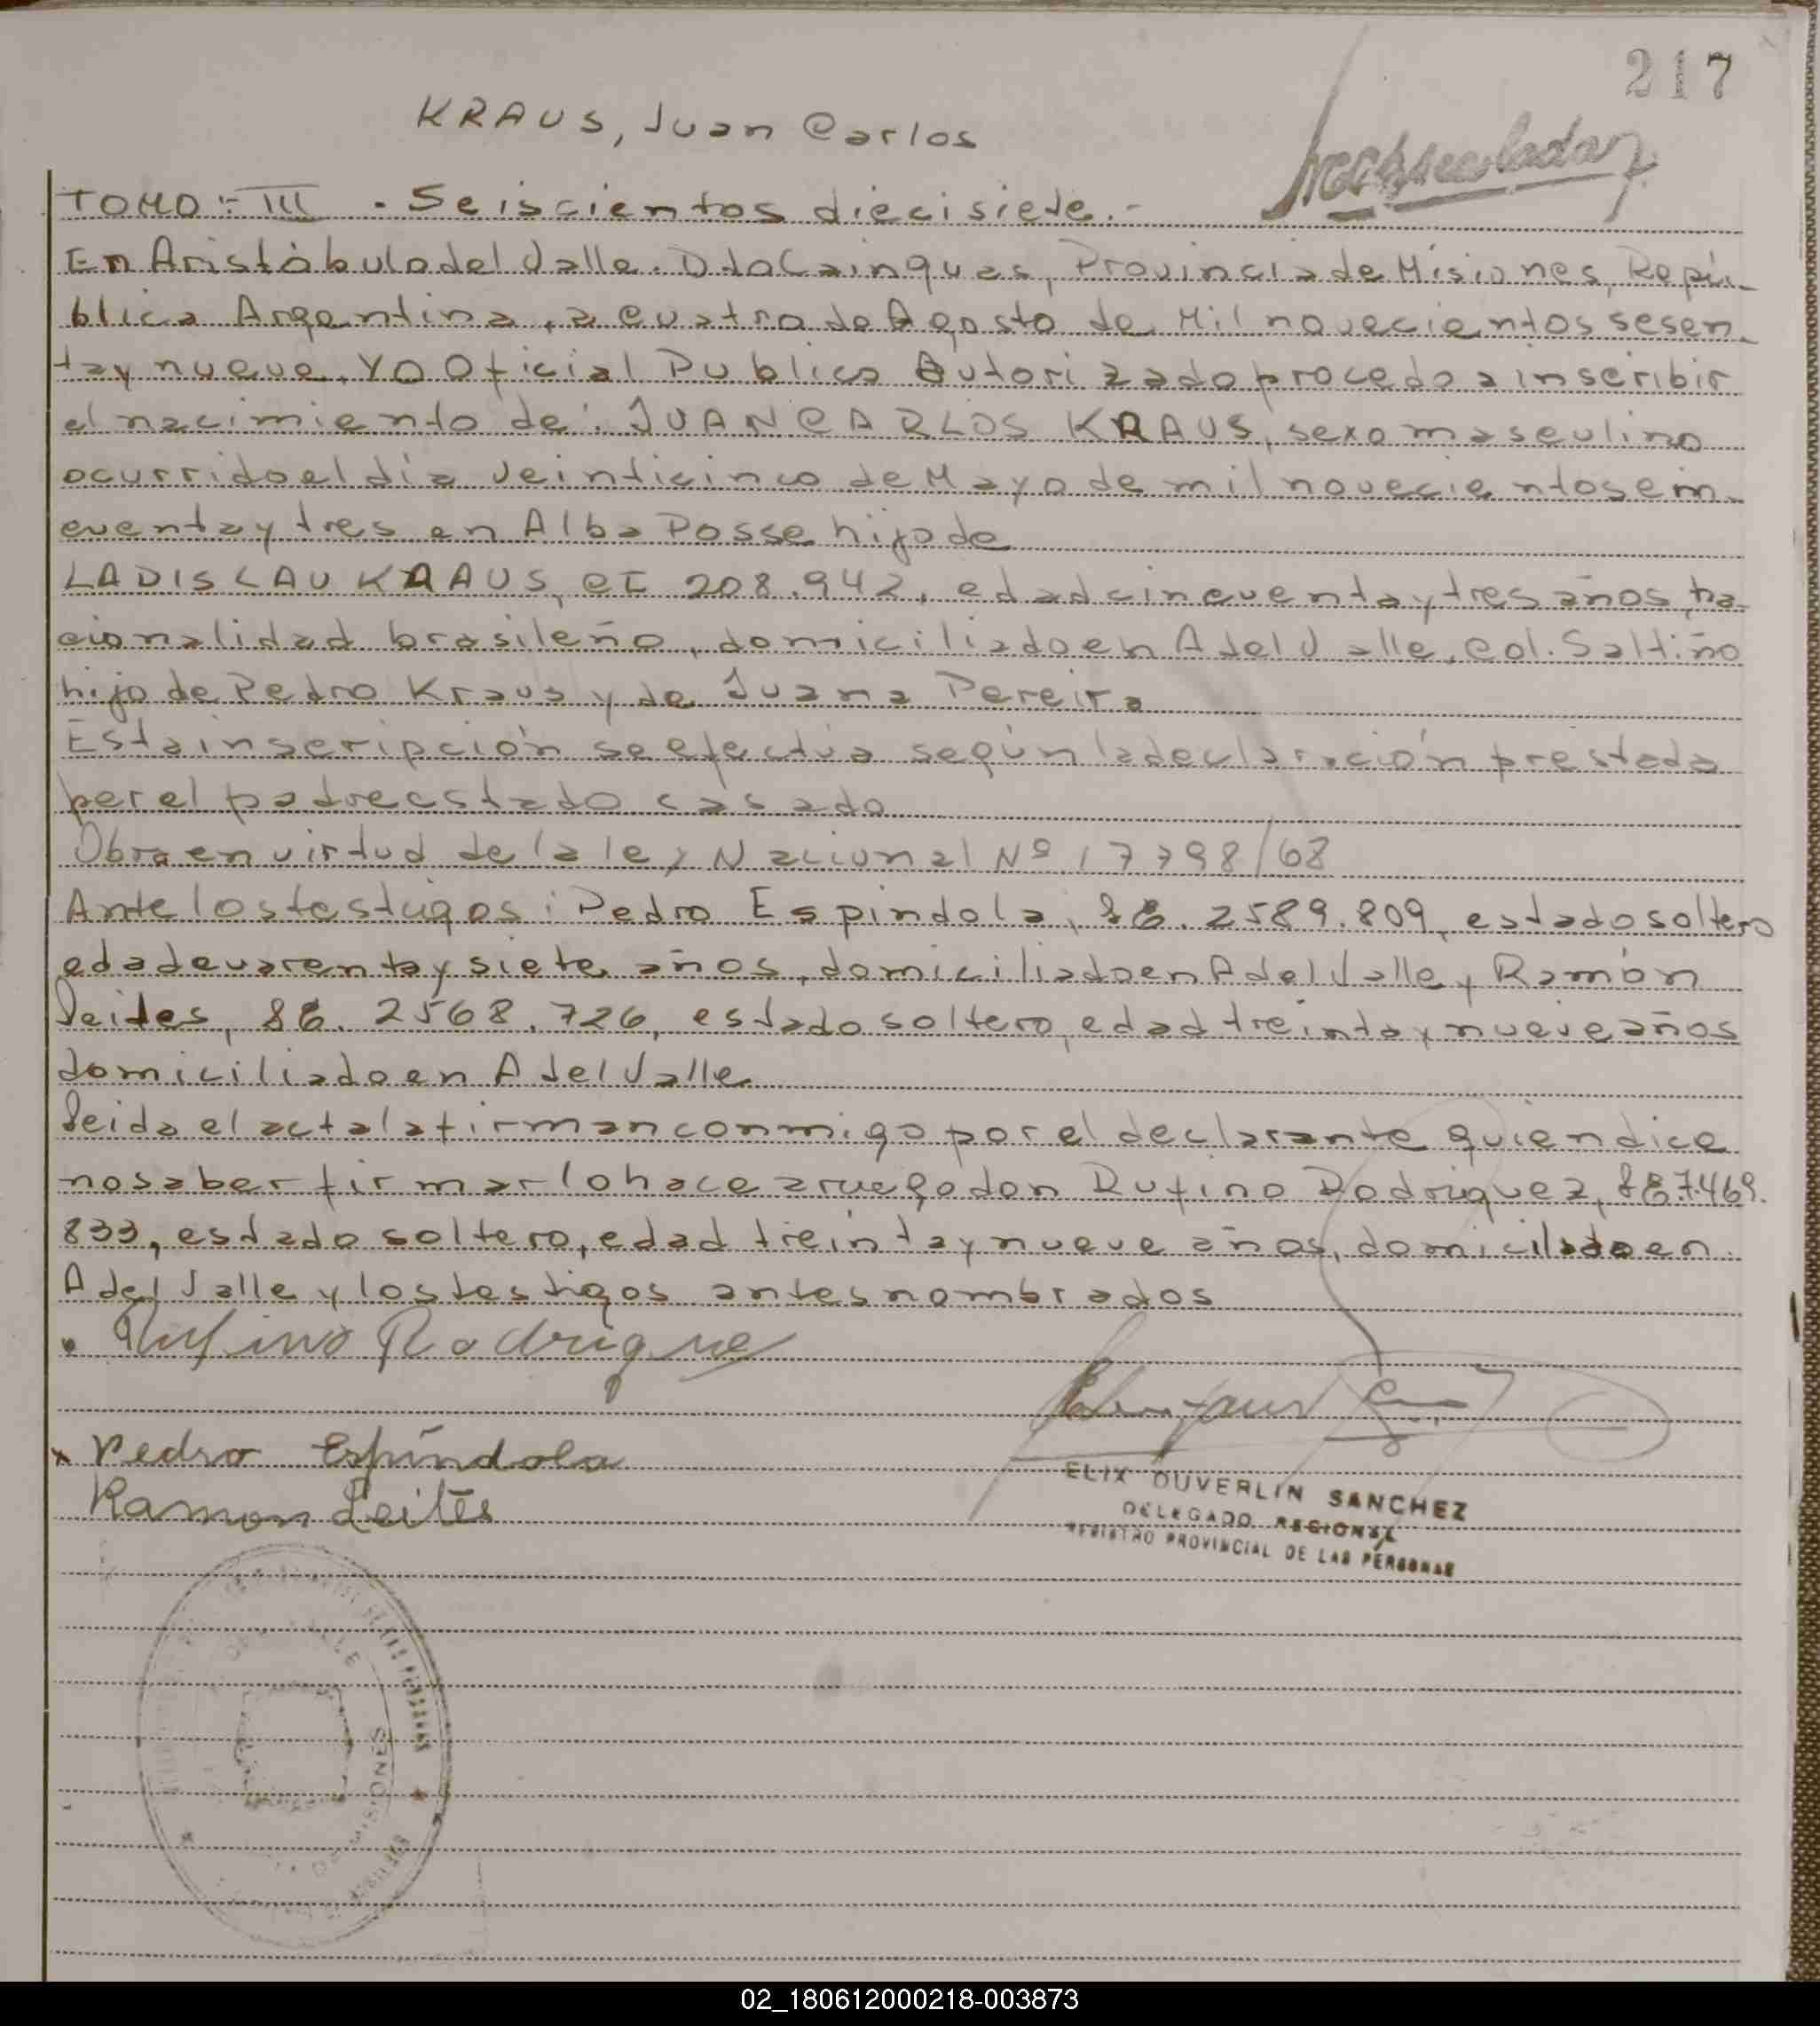 217
KRAUS, Juan Carlos
TOMO:- III - Seiscientos diecisiete.-
En Aristóbulo del Valle. Dto Cainguas, Provincia de Misiones, Repú-
blica Argentina, a cuatro de Agosto de Mil novecientos sesen-
ta y nueve. Yo Oficial Publico Autorizado procedo a inscribir
el nacimiento de: JUAN CARLOS KRAUS, sexo masculino
ocurrido el día veinticinco de Mayo de mil novecientos cin-
cuenta y tres en Alba Posse hijo de
LADISLAU KRAUS, CI 208.942, edad cincuenta y tres años, na-
cionalidad brasileño, domiciliado en A del Valle, Col. Saltiño
hijo de Pedro Kraus y de Juana Pereira
Esta inscripción se efectúa según la declaración prestada
por el padre estado casado
Obra en virtud de la ley Nacional Nº 17798/68
Ante los testigos: Pedro Espindola, LE. 2589.809, estado soltero
edad cuarenta y siete años, domiciliado en A del Valle y Ramón
Leites, LE. 2568.726, estado soltero, edad treinta y nueve años
domiciliado en A del Valle
Leida el acta la firman conmigo por el declarante quien dice
no saber firmar lo hace a ruego don Rufino Rodriguez, LE 7.469.
833, estado soltero, edad treinta y nueve años, domiciliado en
A del Valle y los testigos antes nombrados
Rufino Rodrigue
Pedro Espíndola
Ramon Leites
ELIX OUVERLIN SANCHEZ
DELEGADO REGIONAL
REGISTRO PROVINCIAL DE LAS PERSONAS
DE LAS PERSONAS
VALLE
MISIONES
02_180612000218-003873